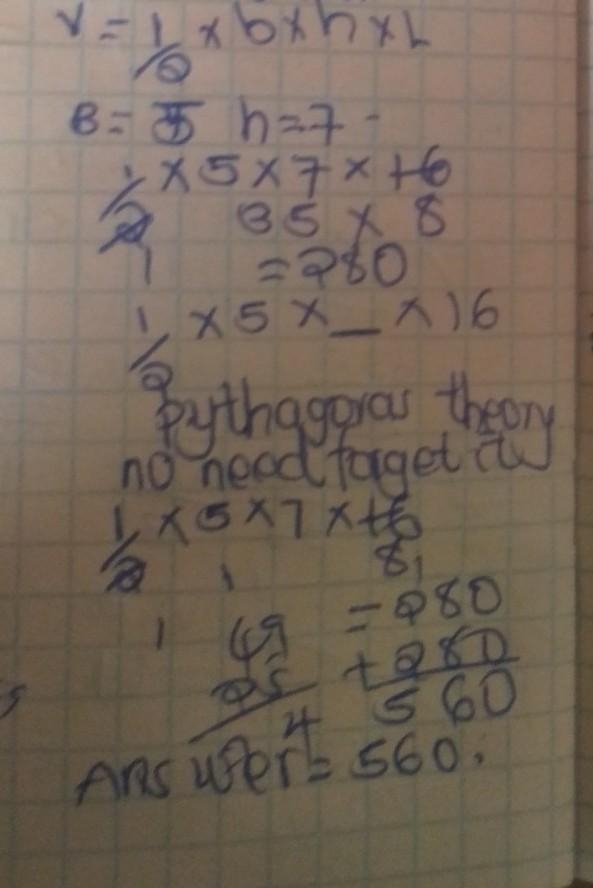 V = 1/2 × b × h × L
B = 5 h = 7
1/2 × 5 × 7 × 16
1 35 × 8
= 280
1/2 × 5 × _ × 16
pythagoras theory
no need
1/2 × 5 × 7 × 16
1 8
= 280
49 + 280
25 560
4
Answer = 560.